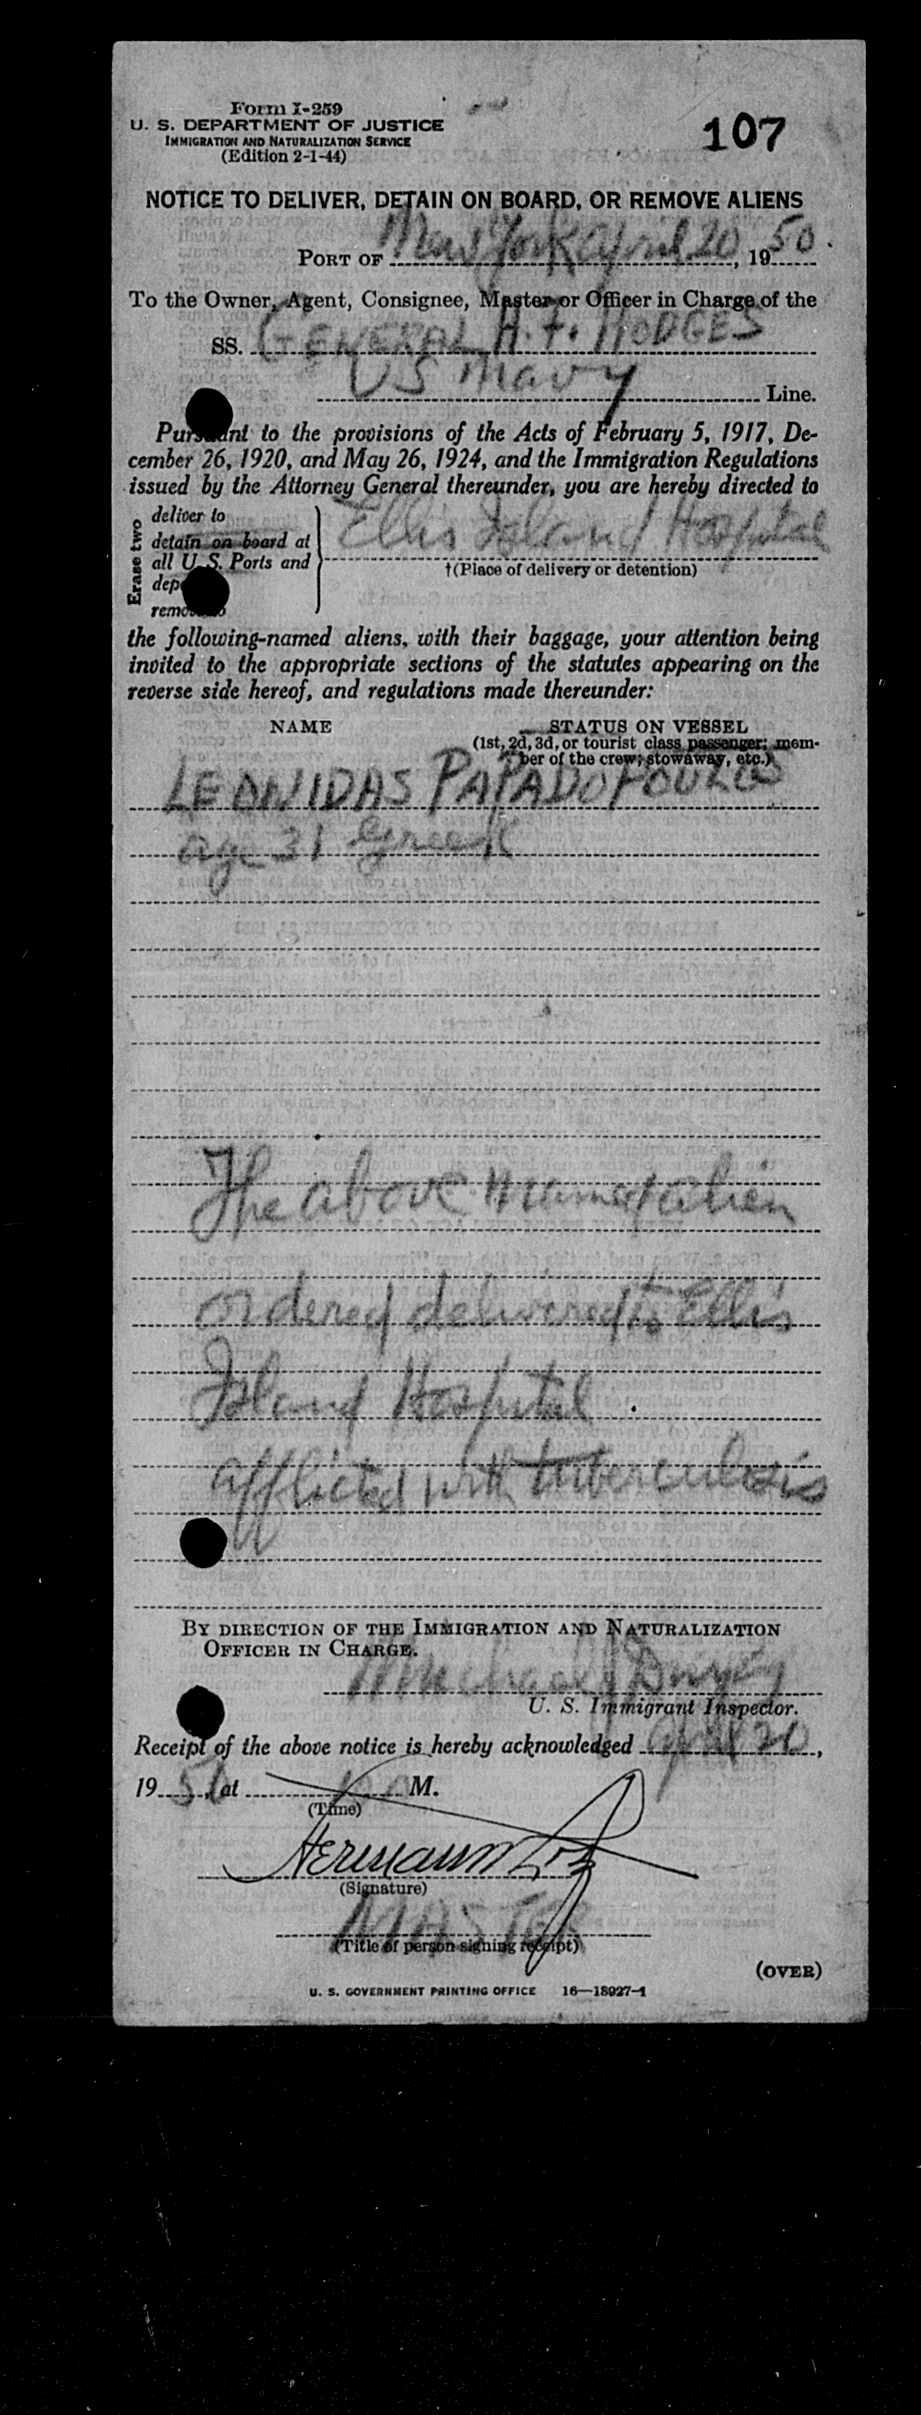 Form I-259
U. S. DEPARTMENT OF JUSTICE
IMMIGRATION AND NATURALIZATION SERVICE
(Edition 2-1-44)
107
NOTICE TO DELIVER, DETAIN ON BOARD, OR REMOVE ALIENS
PORT OF New York April 20, 1950
To the Owner, Agent, Consignee, Master or Officer in Charge of the
SS. GENERAL H. F. HODGES
US Navy Line.
Pursuant to the provisions of the Acts of February 5, 1917, De-
cember 26, 1920, and May 26, 1924, and the Immigration Regulations
issued by the Attorney General thereunder, you are hereby directed to
Erase two
deliver to
detain on board at
all U. S. Ports and
dep
remove to
Ellis Island Hospital
†(Place of delivery or detention)
the following-named aliens, with their baggage, your attention being
invited to the appropriate sections of the statutes appearing on the
reverse side hereof, and regulations made thereunder:
NAME
STATUS ON VESSEL
(1st, 2d, 3d, or tourist class passenger; mem-
ber of the crew; stowaway, etc.)
LEONIDAS PAPADOPOULOS
age 31 Greek
The above named alien
ordered delivered to Ellis
Island Hospital
afflicted with tuberculosis
BY DIRECTION OF THE IMMIGRATION AND NATURALIZATION
OFFICER IN CHARGE.
Michael J Dwyer
U. S. Immigrant Inspector.
Receipt of the above notice is hereby acknowledged April 20,
1950, at M.
(Time)
Hermann
(Signature)
MASTER
(Title of person signing receipt)
(OVER)
U. S. GOVERNMENT PRINTING OFFICE 16—18927-1